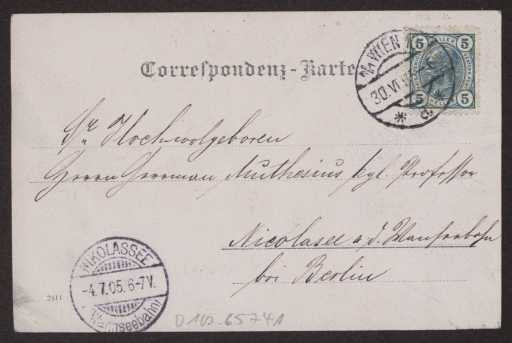 Correspondenz-Karte
5 5
5 5
WIEN
30.VI.05
Sr. Hochwolgeboren
Herrn Herrman Muthesius kgl. Professor
Nicolasee a. d. Wannseebahn
bei Berlin
NIKOLASSEE
-4.7.05.6-7V.
(Wannseebahn)
D 102-6574A